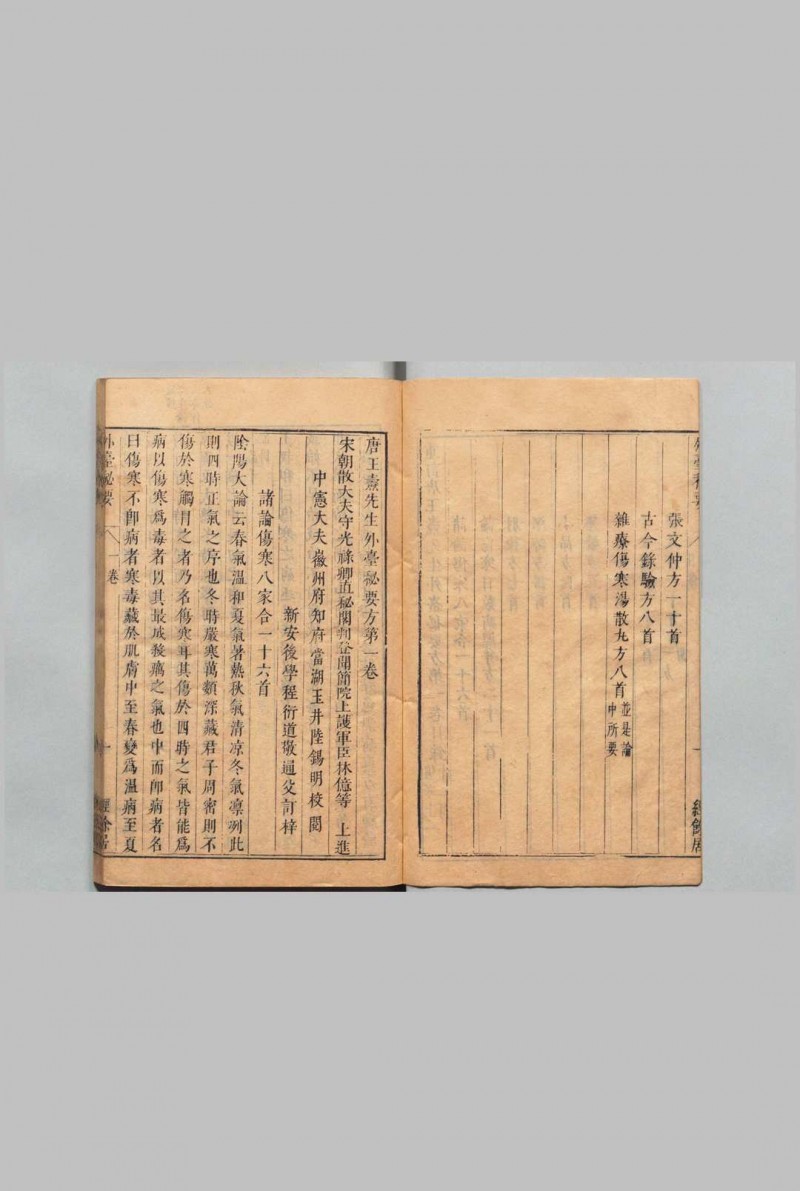 張文仲方一十首
古今錄驗方八首
雜療傷寒湯散丸方八首 並是論中所要
唐王燾先生外臺秘要方第一卷
宋朝散大夫守光祿卿直秘閣判登聞簡院上護軍臣林億等 上進
中憲大夫徽州府知府當湖玉井陸錫明校閱
新安後學程衍道敬通父訂梓
諸論傷寒八家合一十六首
陰陽大論云春氣溫和夏氣暑熱秋氣清凉冬氣凛冽此
則四時正氣之序也冬時嚴寒萬類深藏君子周密則不
傷於寒觸冒之者乃名傷寒耳其傷於四時之氣皆能爲
病以傷寒爲毒者以其最成殺癘之氣也中而卽病者名
曰傷寒不卽病者寒毒藏於肌膚中至春變爲溫病至夏
外臺秘要 一卷 一 經餘居